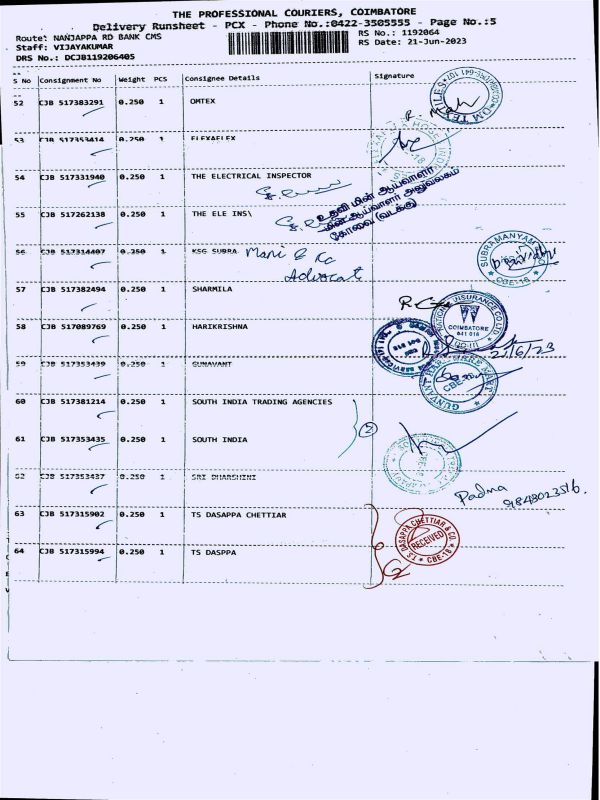 THE PROFESSIONAL COURIERS, COIMBATORE
Delivery Runsheet - PCX - Phone No.:0422-3505555 - Page No.:5
Route: NANJAPPA RD BANK CMS RS No.: 1192064
Staff: VIJAYAKUMAR RS Date: 21-Jun-2023
DRS No.: DCJB119206405
S No Consignment No Weight PCS Consignee Details Signature
52 CJB 517383291 0.250 1 OMTEX
OM TEXTILES
53 CJB 517353414 0.250 1 FLEXAFLEX
54 CJB 517331940 0.250 1 THE ELECTRICAL INSPECTOR
உதவி மின் ஆய்வாளர்
மின் ஆய்வாளர் அலுவலகம்
கோவை (வடக்கு)
55 CJB 517262138 0.250 1 THE ELE INS\
56 CJB 517314407 0.250 1 KSG SUBRA Mani & Co
Advocate
SUBRAMANYAM
CBE-18
57 CJB 517382494 0.250 1 SHARMILA
INSURANCE CO LTD
COIMBATORE
641 018
58 CJB 517089769 0.250 1 HARIKRISHNA
21/6/23
59 CJB 517353439 0.250 1 GUNAVANT
GUNVANT HARDWARE MART
CBE
60 CJB 517381214 0.250 1 SOUTH INDIA TRADING AGENCIES
2
61 CJB 517353435 0.250 1 SOUTH INDIA
CBE-18
62 CJB 517353437 0.250 1 SRI DHARSHINI
Padma
9843023516.
63 CJB 517315902 0.250 1 TS DASAPPA CHETTIAR
T.S. DASAPPA CHETTIAR & CO.
RECEIVED
CBE-18
64 CJB 517315994 0.250 1 TS DASPPA